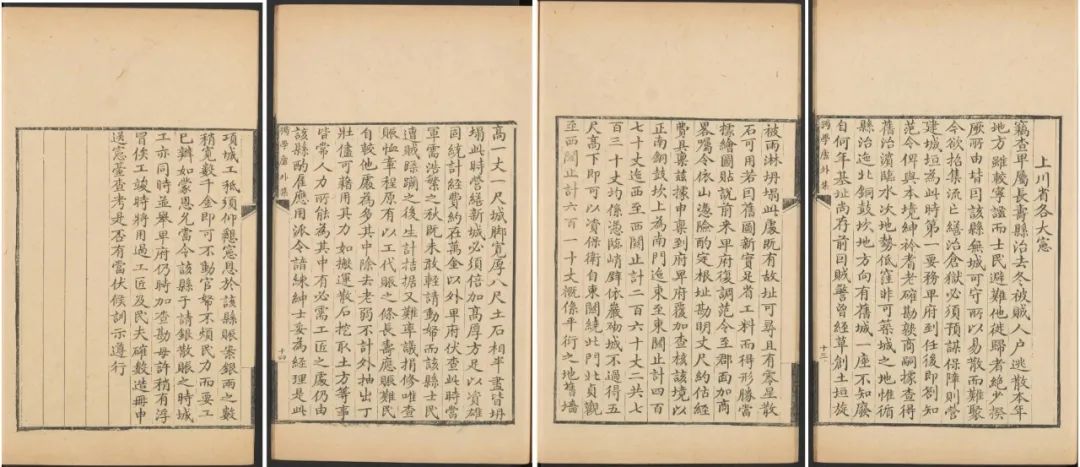 上川省各大憲
竊查卑屬長壽縣治去冬被賊人戶逃散本年
地方雖較寧謐而士民避難他徙歸者絕少揆
厥所由皆因該縣無城可守所以易散而難聚
今欲招集流亡繕治倉獄必須預謀保障則營
建城垣為此時第一要務卑府到任後即劄知
范令俾與本境紳衿耆老確勘籌商嗣據查得
舊治濱臨水次地勢低窪非可築城之地惟循
縣治迤北銅鼓坎地方向有舊城一座不知廢
自何年基址尚存前因賊警曾經草創土垣旋
獨學廬外集
十三
被雨淋坍塌此處既有故址可尋且有零星散
石可用若因舊圖新實足省工料而得形勝當
據繪圖貼說前來卑府復調范令至郡面加商
畧囑令依山憑險酌定根址勘明丈尺約估經
費具稟茲據申稟到府卑府覆加查核該境以
正南銅鼓坎上為南門迤東至東關止計四百
七十丈迤西至西關止計二百六十丈二共七
百三十丈均係憑臨峭壁依巖砌城不過得五
尺高下即可以資保衛自東關繞北門北貞觀
至西關止計六百一十丈概係平衍之地舊墻
高一丈一尺城腳寬厚八尺土石相半盡皆坍
塌此時營繕新城必須倍加高厚方足以資雄
同統計經費約在萬金以外卑府伏查此時當
軍需浩繁之秋既未敢輕請動帑而該縣士民
遭賊蹂躪之後生計拮据又難專議捐修唯查
賑恤章程原有以工代賑之條長壽應賑難民
自較他處為多其中除去老弱不計外抽出丁
壯儘可藉用其力如搬運散石挖取土方等事
皆常人力所能為其中有必需工匠之處仍由
該縣酌雇應用派令諳練紳士妥為經理是此
獨學廬外集
十四
項城工祇須仰懇憲恩於該縣賑案銀兩之數
稍寬數千金即可不動官帑不煩民力而要工
已辦如蒙恩允當令該縣於請銀散賑之時城
工亦同時並舉卑府仍時加查勘毋許稍有浮
冒俟工竣時將用過工匠及民夫確數造冊申
送憲臺查考是否有當伏候訓示遵行